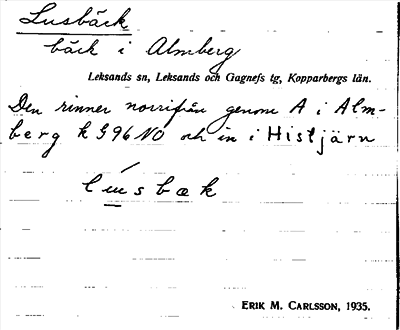 Lusbäck
bäck i Almberg
Leksands sn, Leksands och Gagnefs tg, Kopparbergs län.
Den rinner norrifrån genom A i Alm-
berg k G96 NO och in i Histjärn
lusbæk
ERIK M. CARLSSON, 1935.